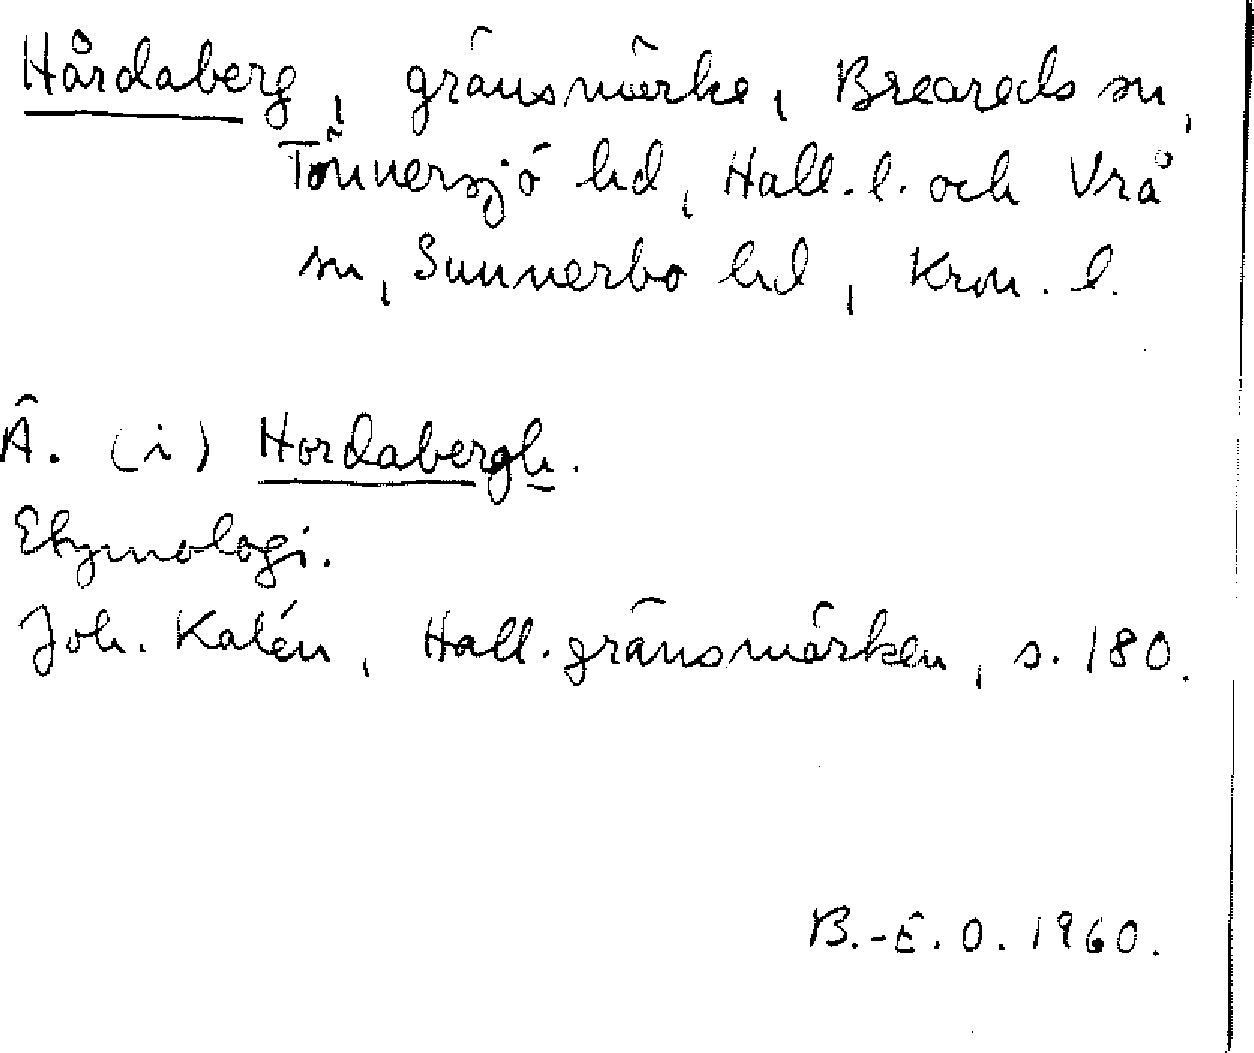 Hårdaberg, gränsmärke, Breareds sn,
Tönnersjö hd, Hall. l. och Vrå
sn, Sunnerbo hd, Kron. l.
Ä. (i) Hordabergh.
Etymologi.
Joh. Kalén, Hall. gränsmärken, s. 180.
B.-E. O. 1960.